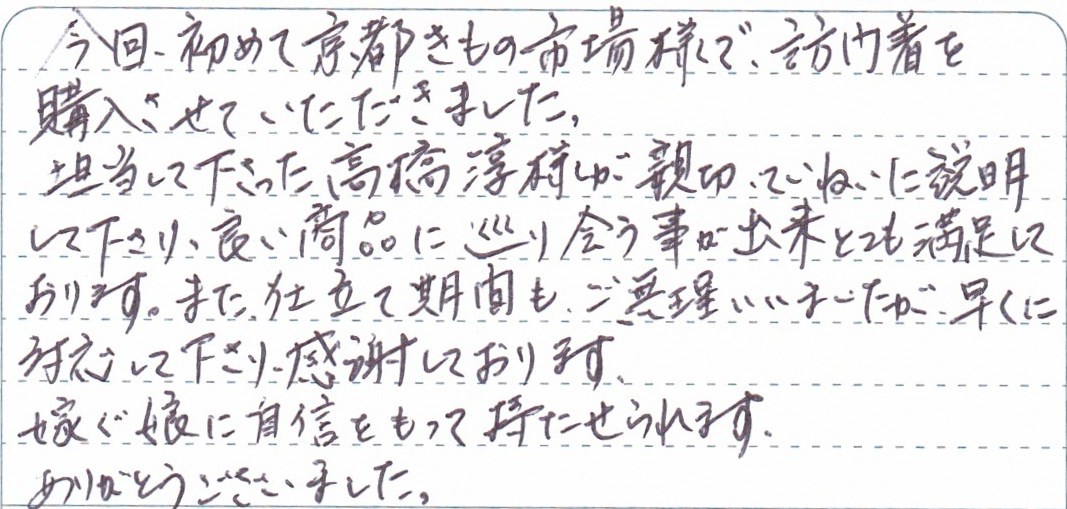 今回、初めて京都きもの市場様で、訪門着を
購入させていただきました。
担当して下さった高橋淳様が親切、ていねいに説明
して下さり、良い商品に巡り会う事が出来とても満足して
おります。また、仕立て期間も、ご無理いいましたが、早くに
対応して下さり、感謝しております。
嫁ぐ娘に自信をもって持たせられます。
ありがとうございました。